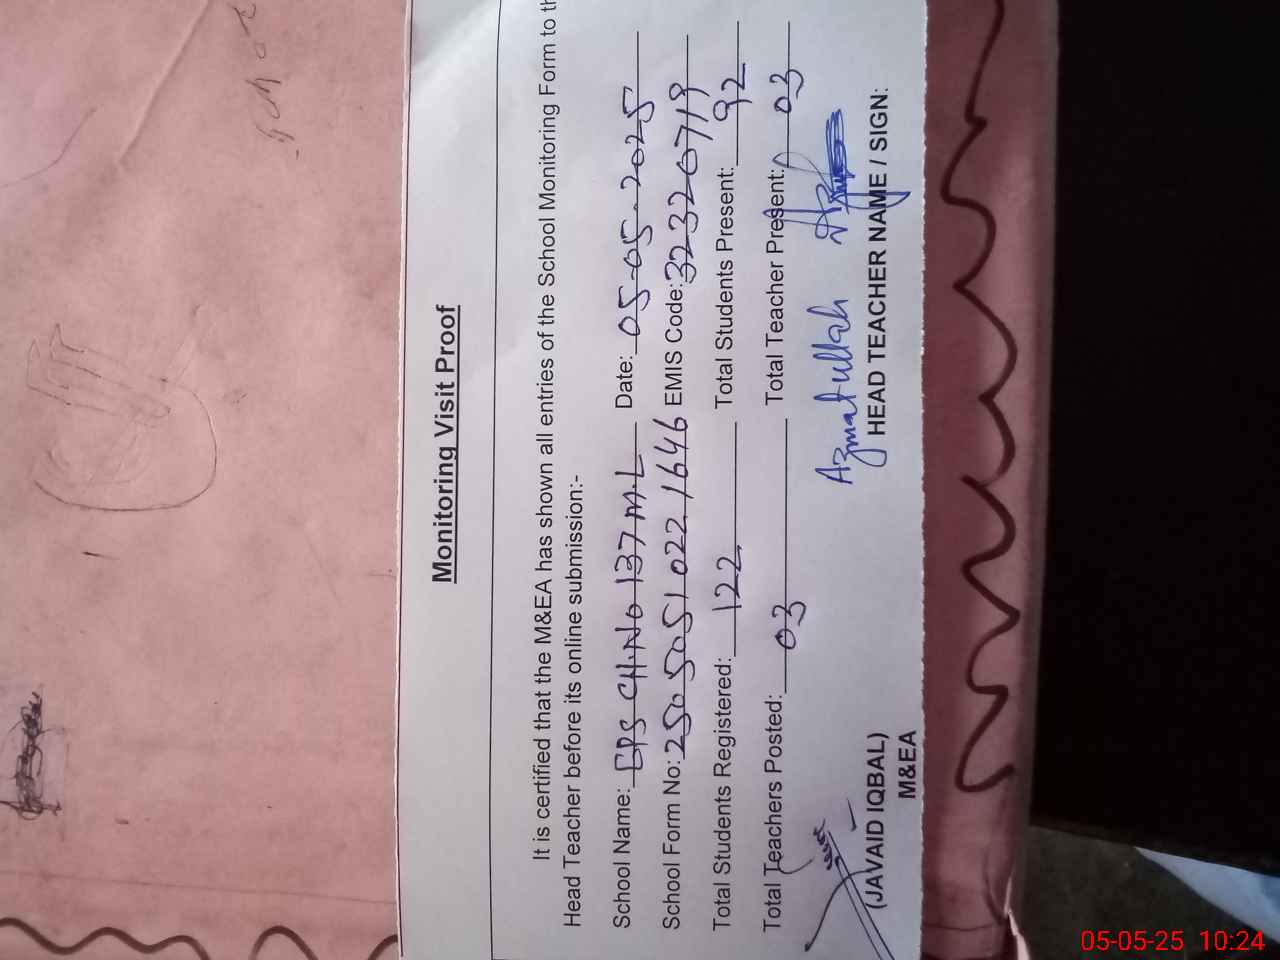 Monitoring Visit Proof
It is certified that the M&EA has shown all entries of the School Monitoring Form to
Head Teacher before its online submission:-
School Name: GPS CH.No 137 M.L Date: 05-05-2025
School Form No: 2505051022 1646 EMIS Code: 32320719
Total Students Registered: 122 Total Students Present: 92
Total Teachers Posted: 03 Total Teacher Present: 03
Azmatullah
(JAVAID IQBAL) HEAD TEACHER NAME / SIGN:
M&EA
05-05-25 10:24